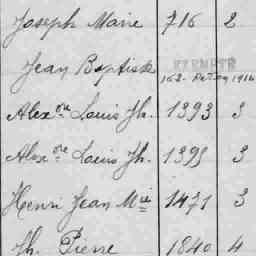 Joseph Marie 716 2
Jean Baptiste EXEMPTÉ
162 1914
Alex.re Louis Jh. 1393 3
Alex.re Louis Jh. 1393 3
Henri Jean Mie 1471 3
Jh. Pierre 1840 4